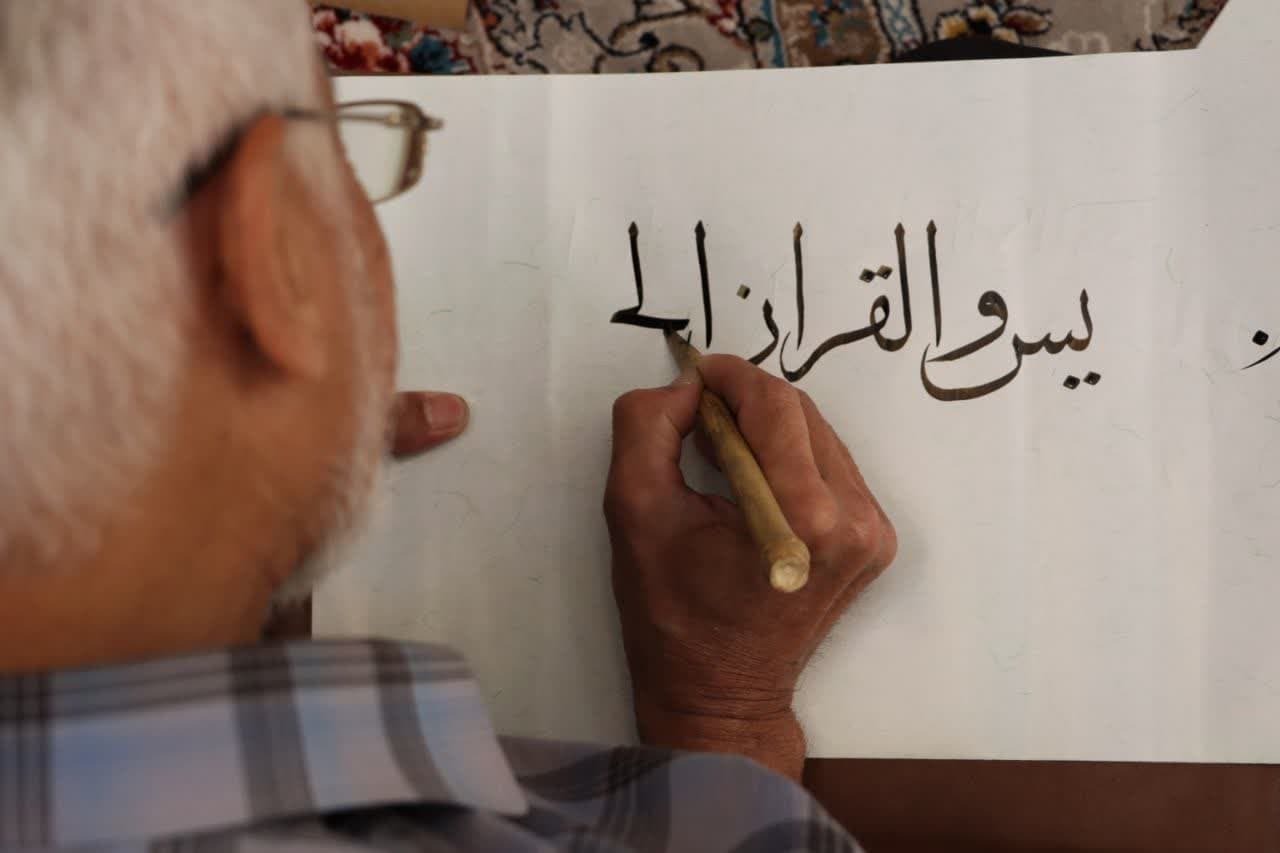 یس و القران الح